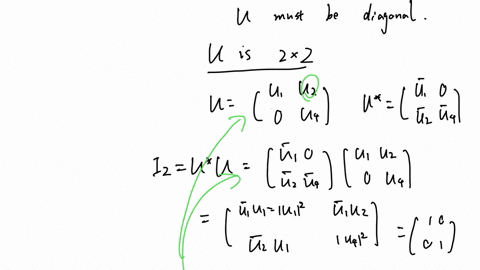 U must be diagonal.
U is 2×2
U = ( u₁ u₂ ; 0 u₄ )   U* = ( ū₁ 0 ; ū₂ ū₄ )
I₂ = U*U = ( ū₁ 0 ; ū₂ ū₄ ) ( u₁ u₂ ; 0 u₄ )
= ( ū₁u₁ = |u₁|² ū₁u₂ ; ū₂u₁ |u₄|² ) = ( 1 0 ; 0 1 )